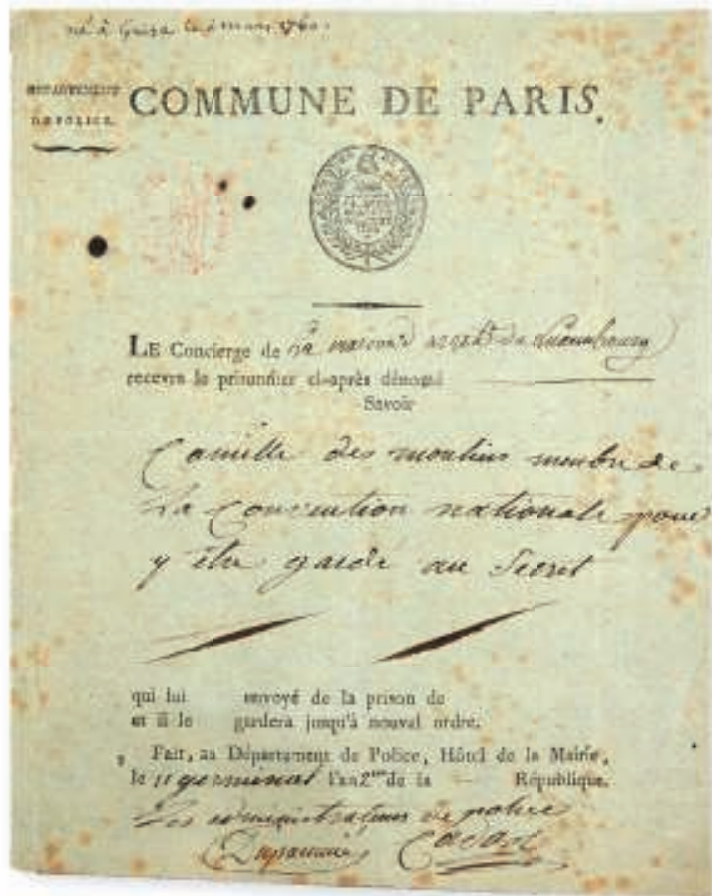 né à Guise le 2 mars 1760.
DÉPARTEMENT
DE POLICE.
COMMUNE DE PARIS.
LE Concierge de la maison d'arrêt du Luxembourg
recevra le prisonnier ci-après dénomé
Savoir
Camille des moulins membre de
La Convention nationale pour
y être gardé au Secret
qui lui envoyé de la prison de
et il le gardera jusqu'à nouvel ordre.
Fait, au Département de Police, Hôtel de la Mairie,
le 11 germinal l'an 2me de la République.
Les administrateurs de police